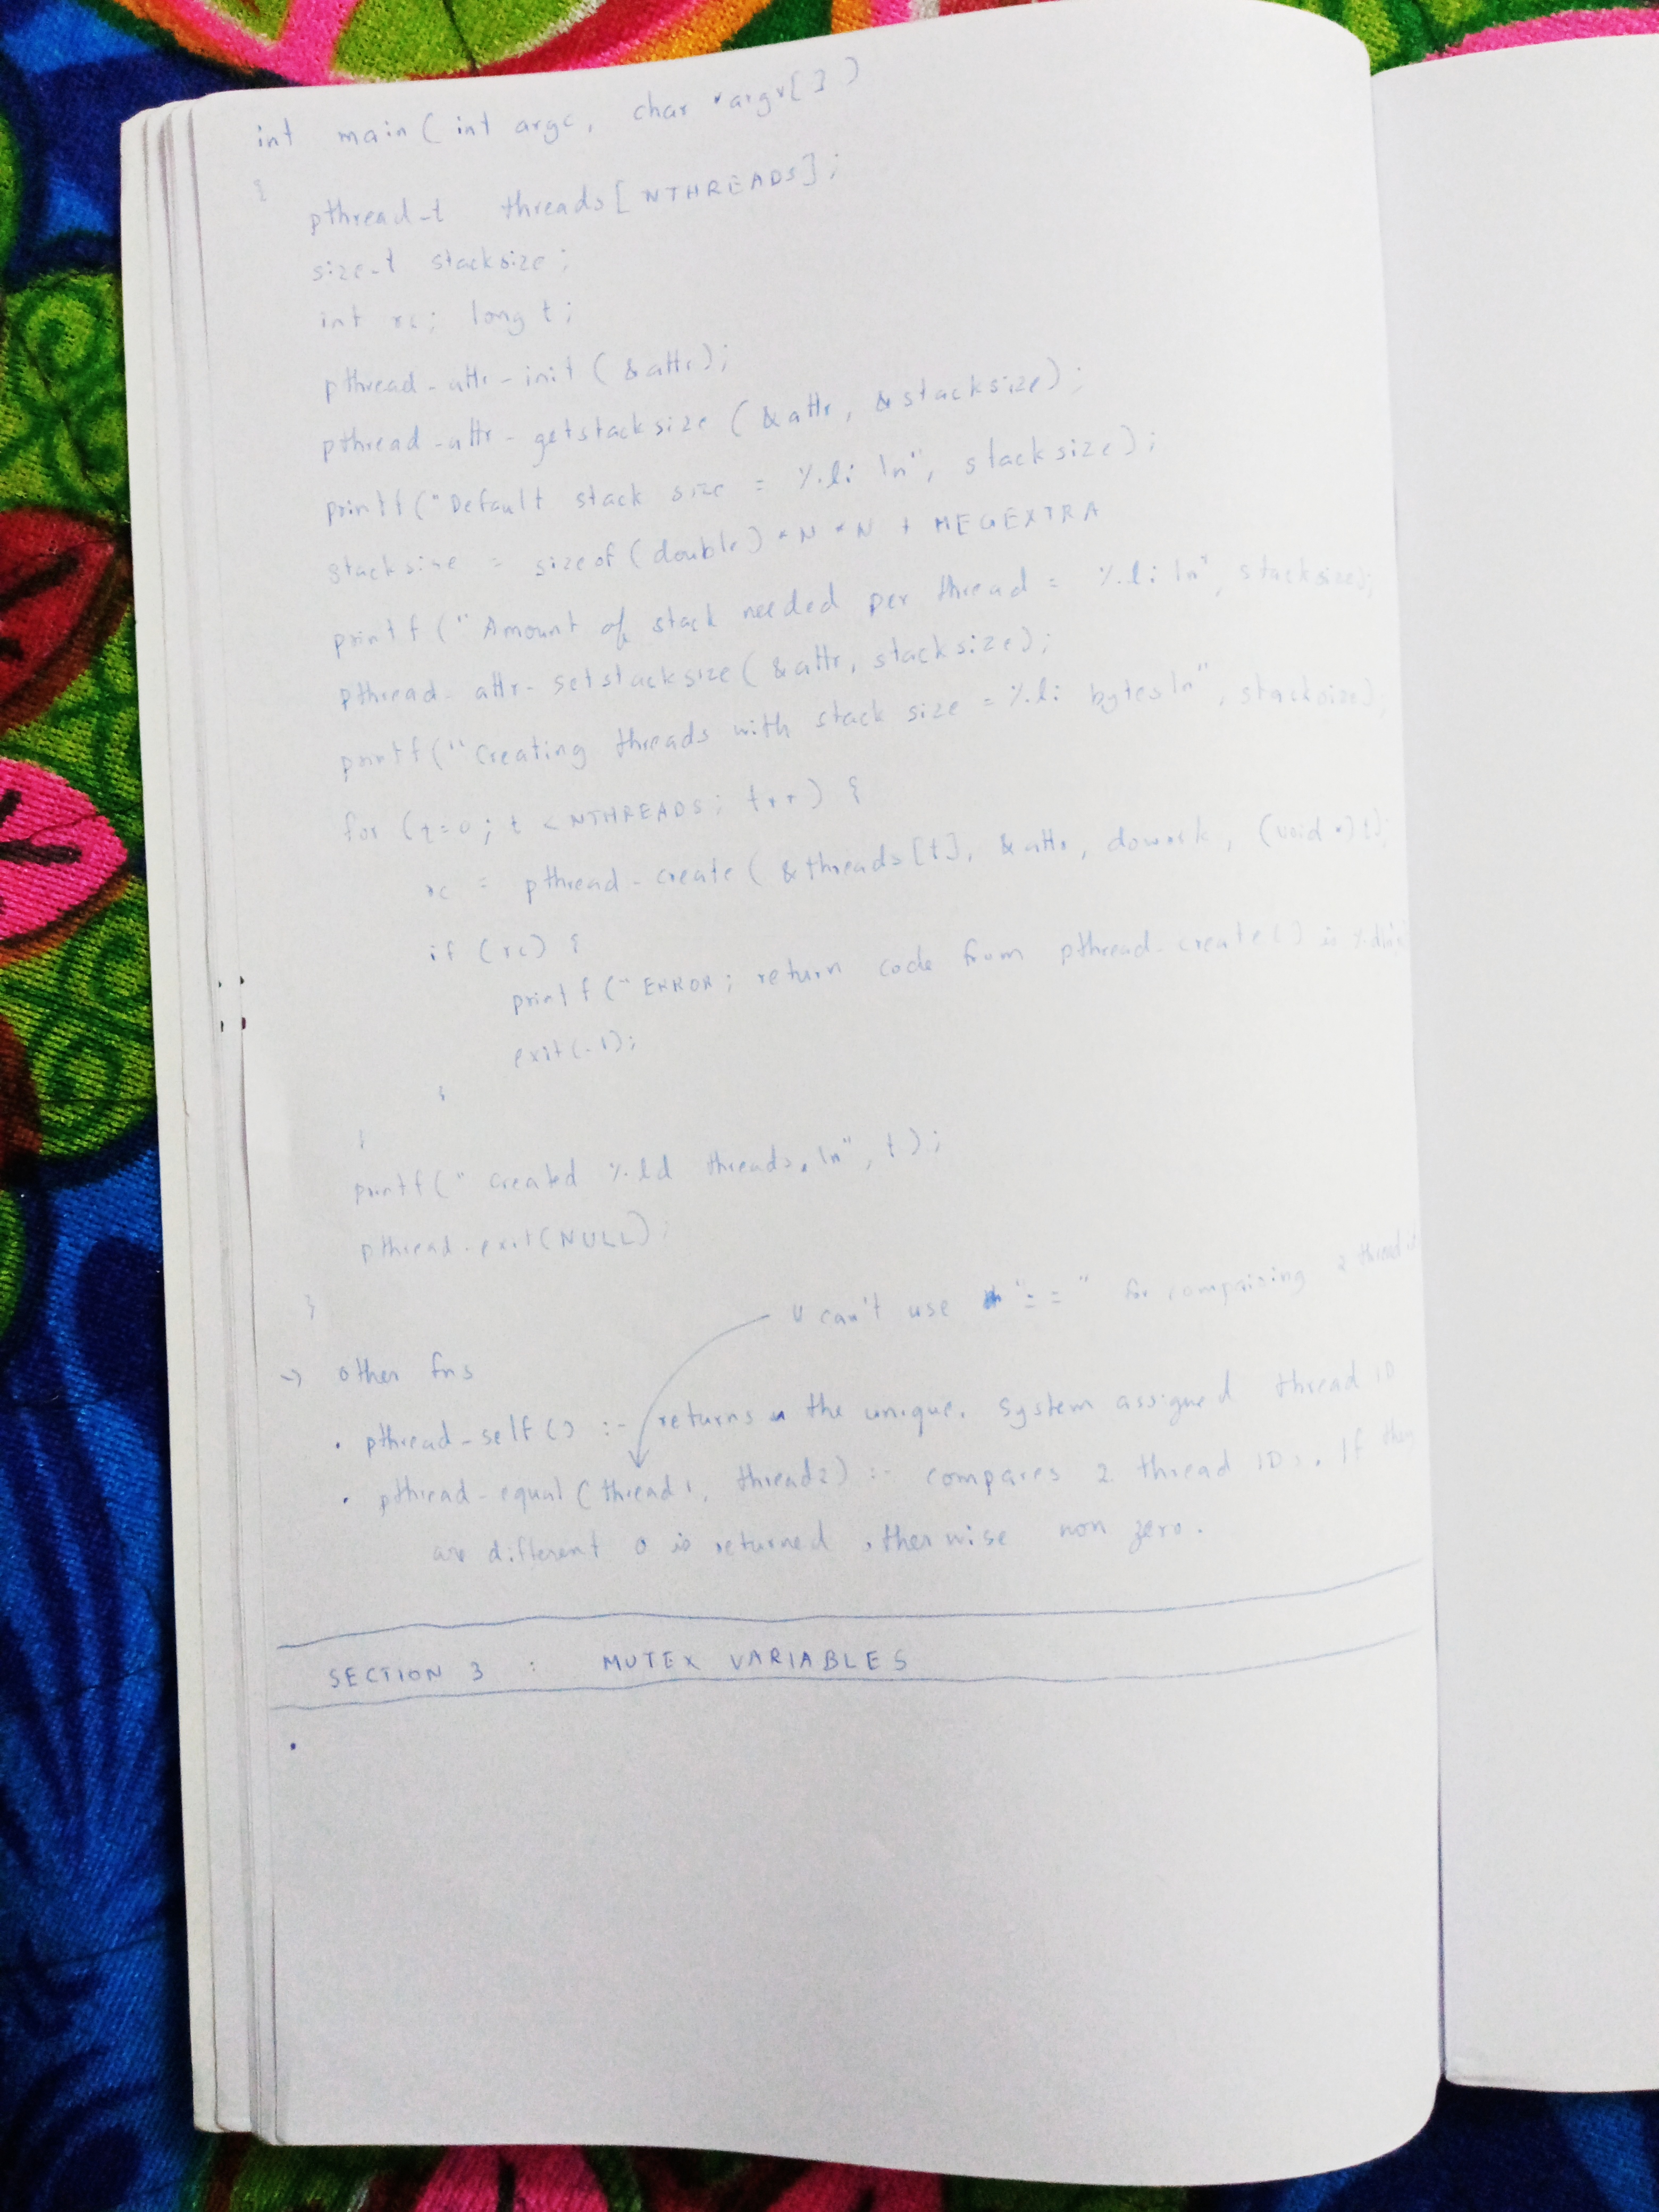 int main( int argc, char *argv[])
{
pthread_t threads[NTHREADS];
size_t stacksize;
int rc; long t;
pthread_attr_init (&attr);
pthread_attr_getstacksize (&attr, &stacksize);
printf("Default stack size = %li \n", stacksize);
stacksize = sizeof(double)*N*N + MEGEXTRA
printf("Amount of stack needed per thread = %li \n", stacksize);
pthread_attr_setstacksize(&attr, stacksize);
printf("Creating threads with stack size = %li bytes\n", stacksize);
for (t=0; t<NTHREADS; t++) {
rc = pthread_create(&threads[t], &attr, dowork, (void *)t);
if (rc) {
printf("ERROR; return code from pthread_create() is
exit(-1);
}
}
printf("Created %ld threads.\n", t);
pthread_exit(NULL);
}
U can't use "==" for comparining 2
-> Other fns
• pthread_self() :- returns the unique, system assigned thread ID
• pthread_equal(thread1, thread2) :- compares 2 thread IDs. If they
are different 0 is returned otherwise non zero.
SECTION 3 : MUTEX VARIABLES
•